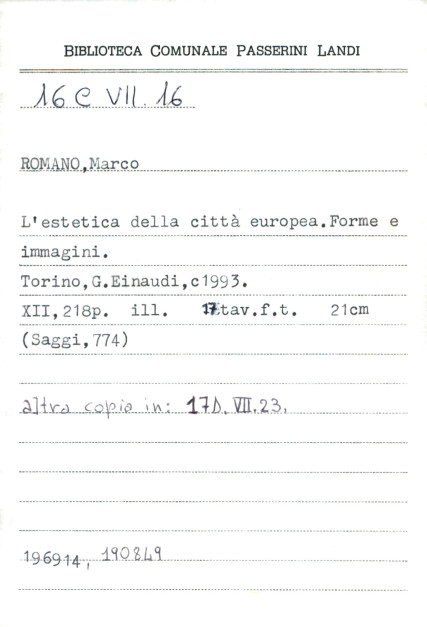 BIBLIOTECA COMUNALE PASSERINI LANDI
16 C VII. 16
ROMANO,Marco
L'estetica della città europea.Forme e
immagini.
Torino,G.Einaudi,c1993.
XII,218p. ill. 17tav.f.t. 21cm
(Saggi,774)
altra copia in: 17D. VII.23.
196914, 190849